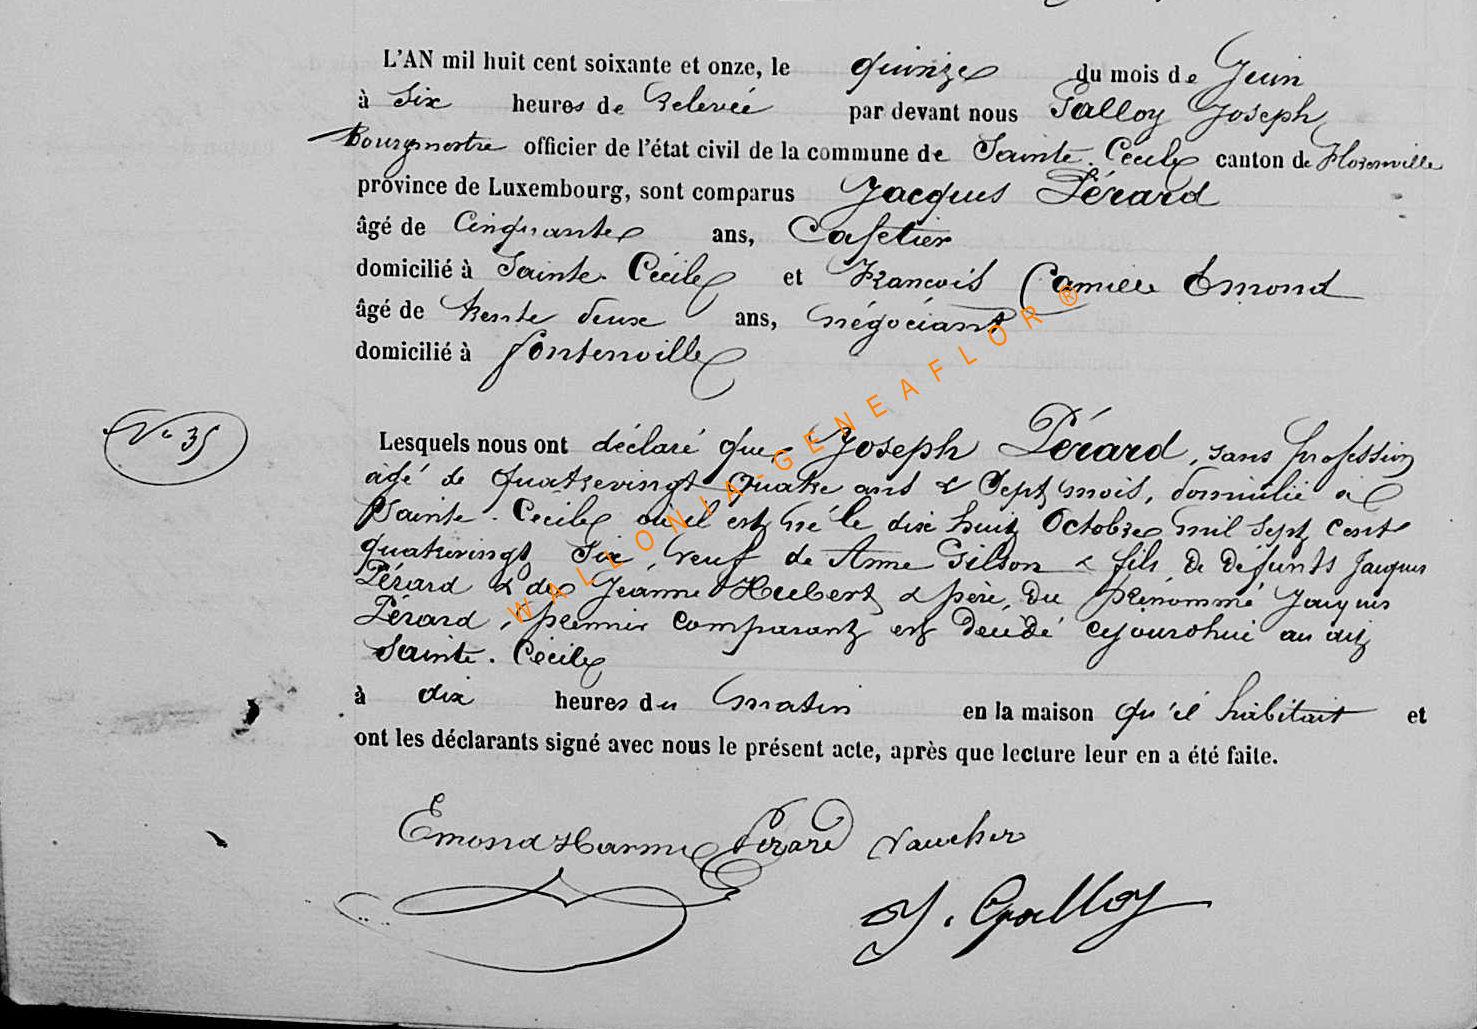 L'AN mil huit cent soixante et onze, le quinze du mois de Juin
à Six heures de Relevée par devant nous Galloy Joseph
Bourgmestre officier de l'état civil de la commune de Sainte-Cécile canton de Florenville
province de Luxembourg, sont comparus Jacques Pérard
âgé de Cinquante ans, Cafetier
domicilié à Sainte-Cécile et François Camille Emond
âgé de trente deux ans, négociant
domicilié à fontenoille
N° 35
Lesquels nous ont déclaré que Joseph Pérard, sans profession
agé de quatrevingt quatre ans & Sept mois, domicilié à
Sainte-Cécile où il est né le dix huit Octobre mil sept cent
quatrevingt Six, veuf de Anne Gilson & fils de défunts Jacques
Pérard & de Jeanne Hubert & père du prénommé Jacques
Pérard, premier comparant est décédé cejourdhui au dit
Sainte-Cécile
à dix heures du matin en la maison qu'il habitait et
ont les déclarants signé avec nous le présent acte, après que lecture leur en a été faite.
Emond Pérard
J. Galloy
WALLONIA-GENEAFLOR ®